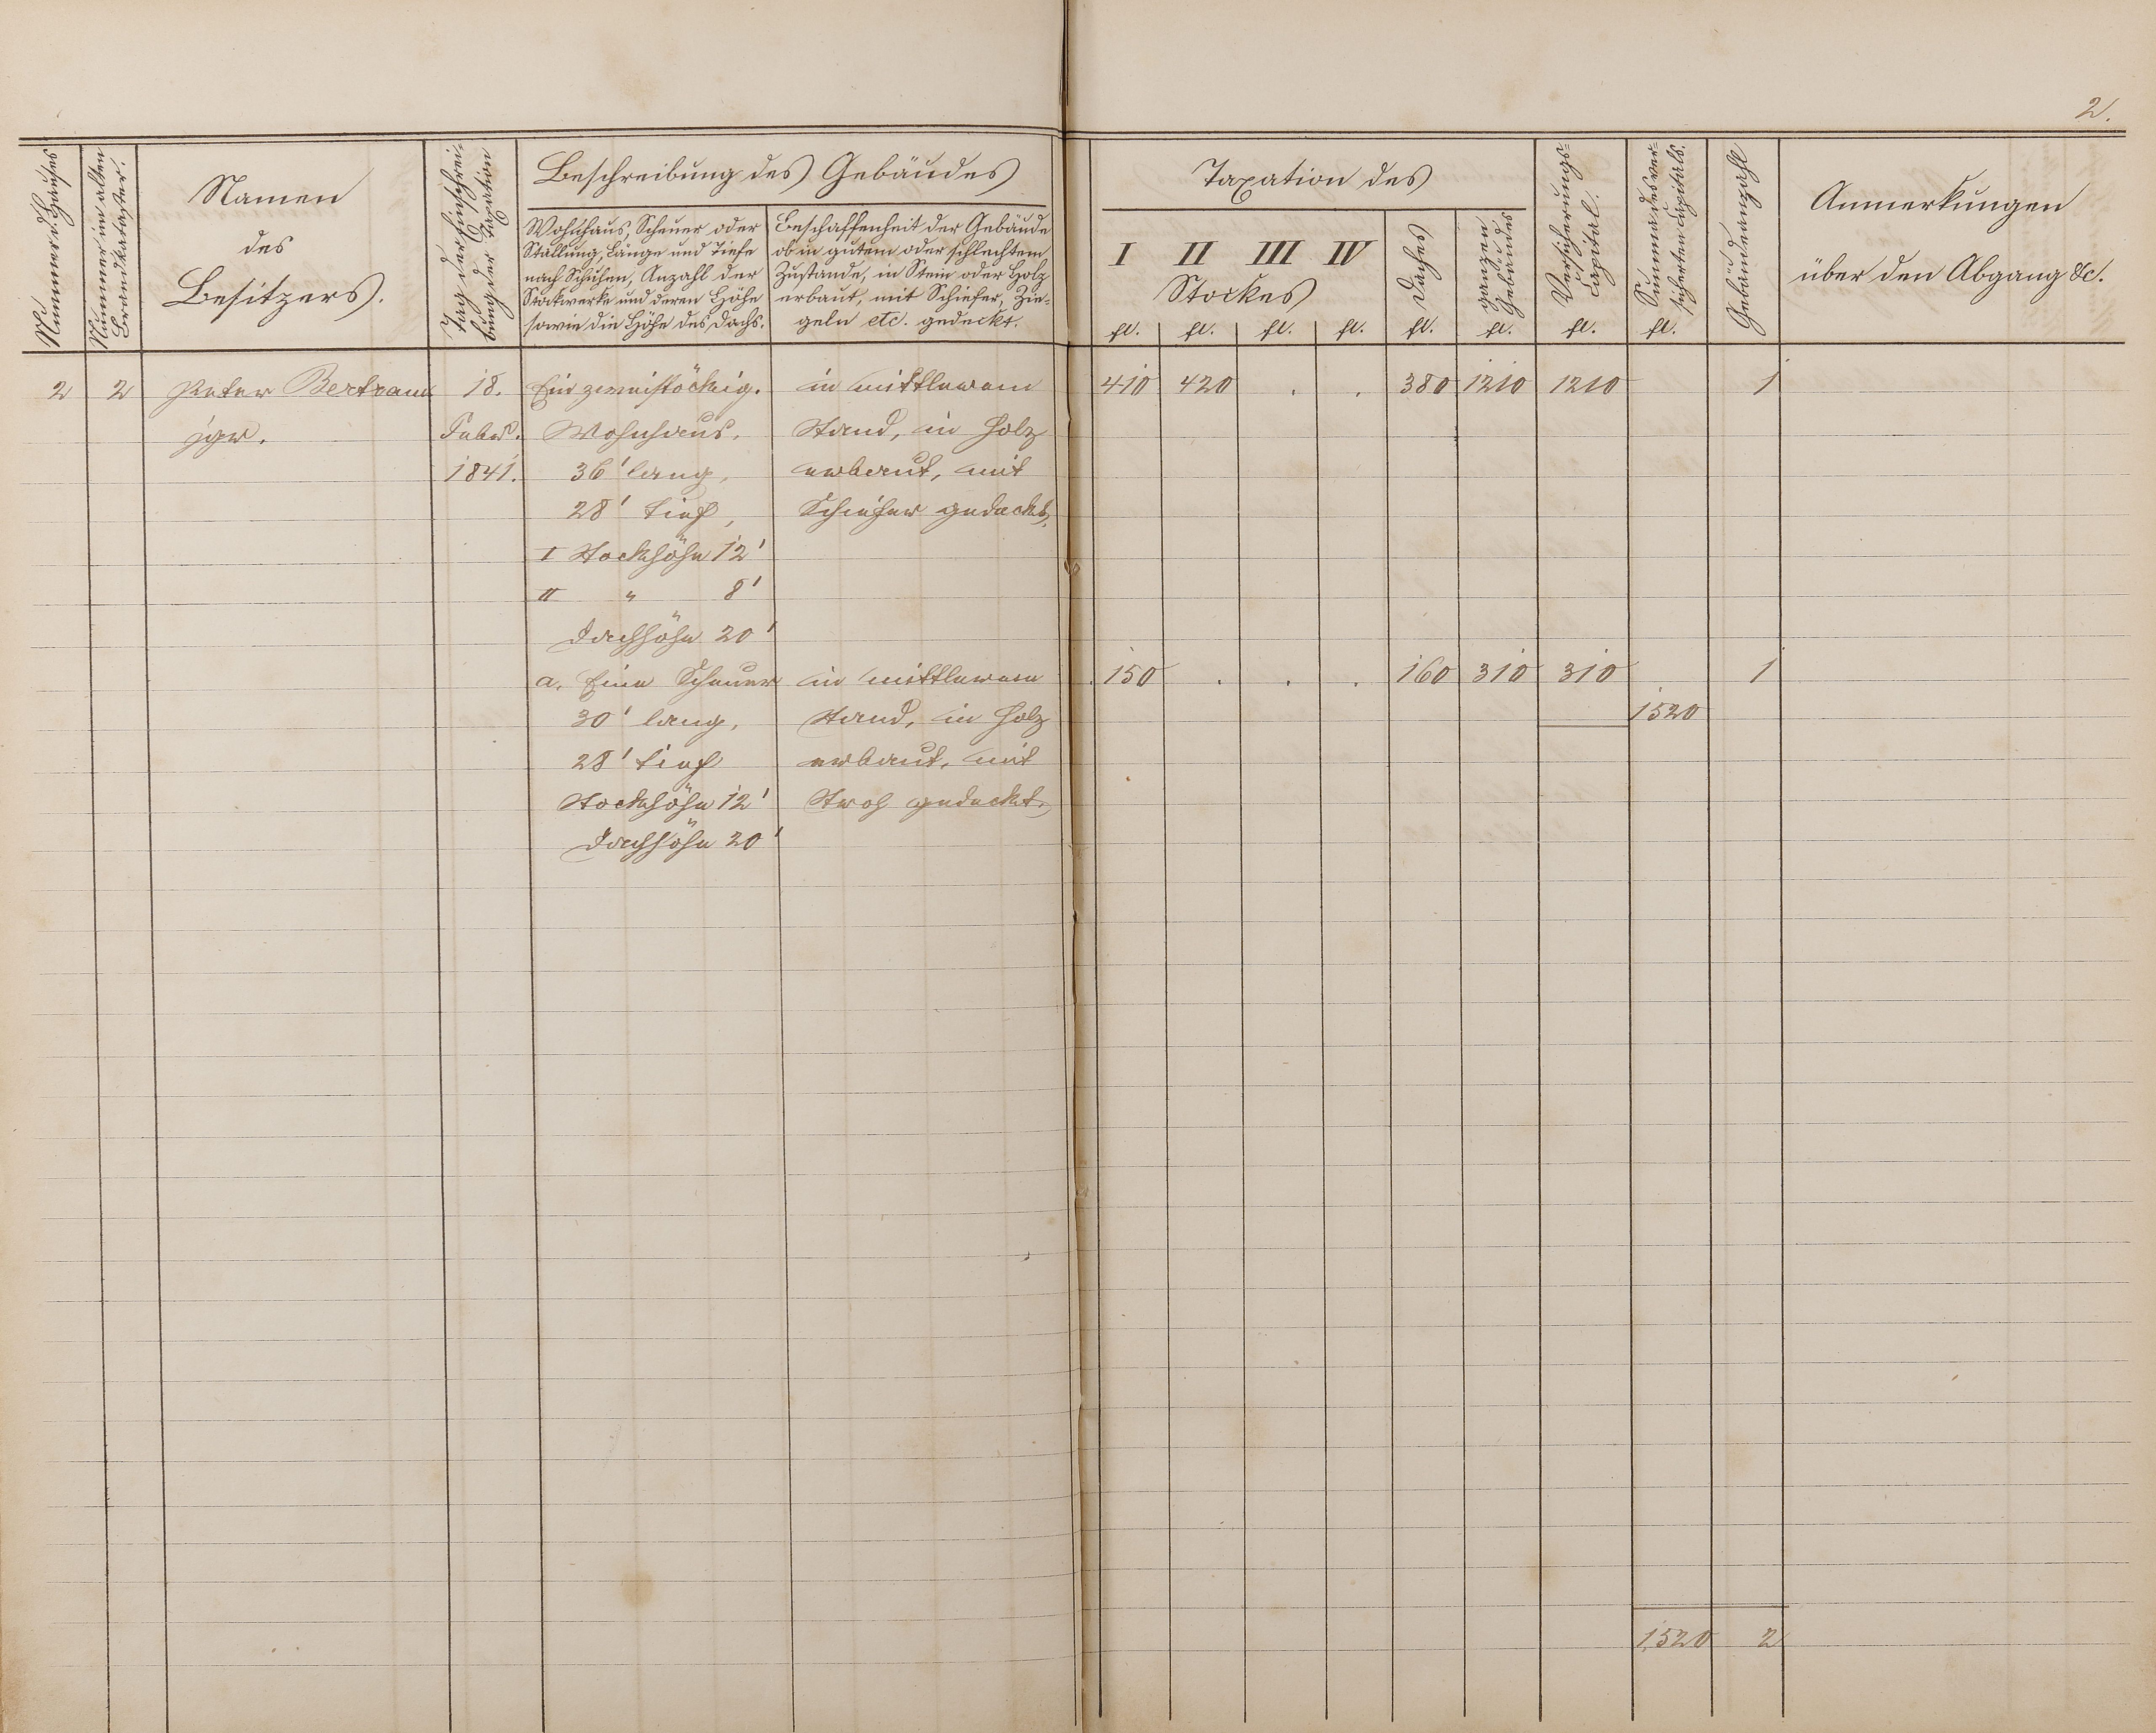 2.
Nummer d. Hauses
Nummer im alten
Brandkataster.
Namen
des
Besitzers.
Tag der Einschrei-
bung der Taxation
Beschreibung des Gebäudes
Wohnhaus, Scheuer oder
Stallung, Länge und Tiefe
nach Schuhen, Anzahl der
Stockwerke und deren Höhe
sowie die Höhe des Dachs.
Beschaffenheit der Gebäude
ob in gutem oder schlechtem
Zustande, in Stein oder Holz
erbaut, mit Schiefer, Zie-
geln etc. gedeckt.
Taxation des
I II III IV
Stockes
Daches
ganzen
Gebäudes
Versicherungs-
Capital.
Summa des ver-
sicherten Capitals.
Gebäudeanzahl
Anmerkungen
über den Abgang &c.
fl. fl. fl. fl. fl. fl. fl. fl.
2 2 Peter Bertram 18. Ein zweistöckig. in mittlerem 410 420 . . 380 1210 1210 1
jgr. Febr. Wohnhaus, Stand, in Holz
1841. 36' lang, erbaut, mit
28' tief, Schiefer gedeckt,
I Stockhöhe 12'
II " 8'
Dachhöhe 20'
a. Eine Scheuer in mittlerem 150 . . . 160 310 310 1
30' lang, Stand, in Holz 1520
28' tief erbaut, mit
Stockhöhe 12' Stroh gedeckt,
Dachhöhe 20'
1520 2